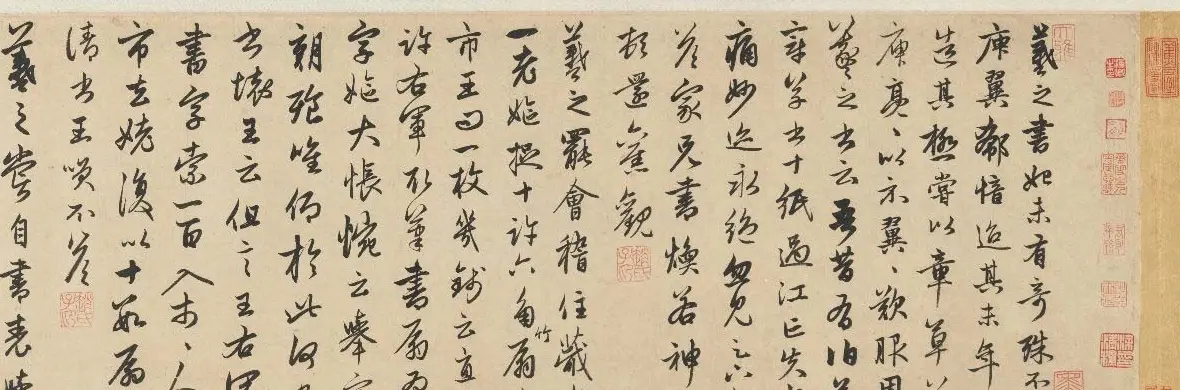 羲之書始未有奇殊不
庾翼郗愔迨其末年
造其極嘗以章草
庾亮〻以示翼〻歎服因
羲之書云吾昔有伯
章草書十紙過江亡失
痛妙迹永絕忽見足下
荅家兄書煥若神
頓還舊觀
羲之罷會稽住蕺
一老嫗捉十許六角竹扇
市王問一枚幾錢云直
許右軍取筆書扇扇為
字嫗大悵惋云舉家
朝飡唯仰於此何
書壞王云但言王右軍
書字索一百入市〻人
市去姥復以十數扇
請書王笑不荅
羲之嘗自書表